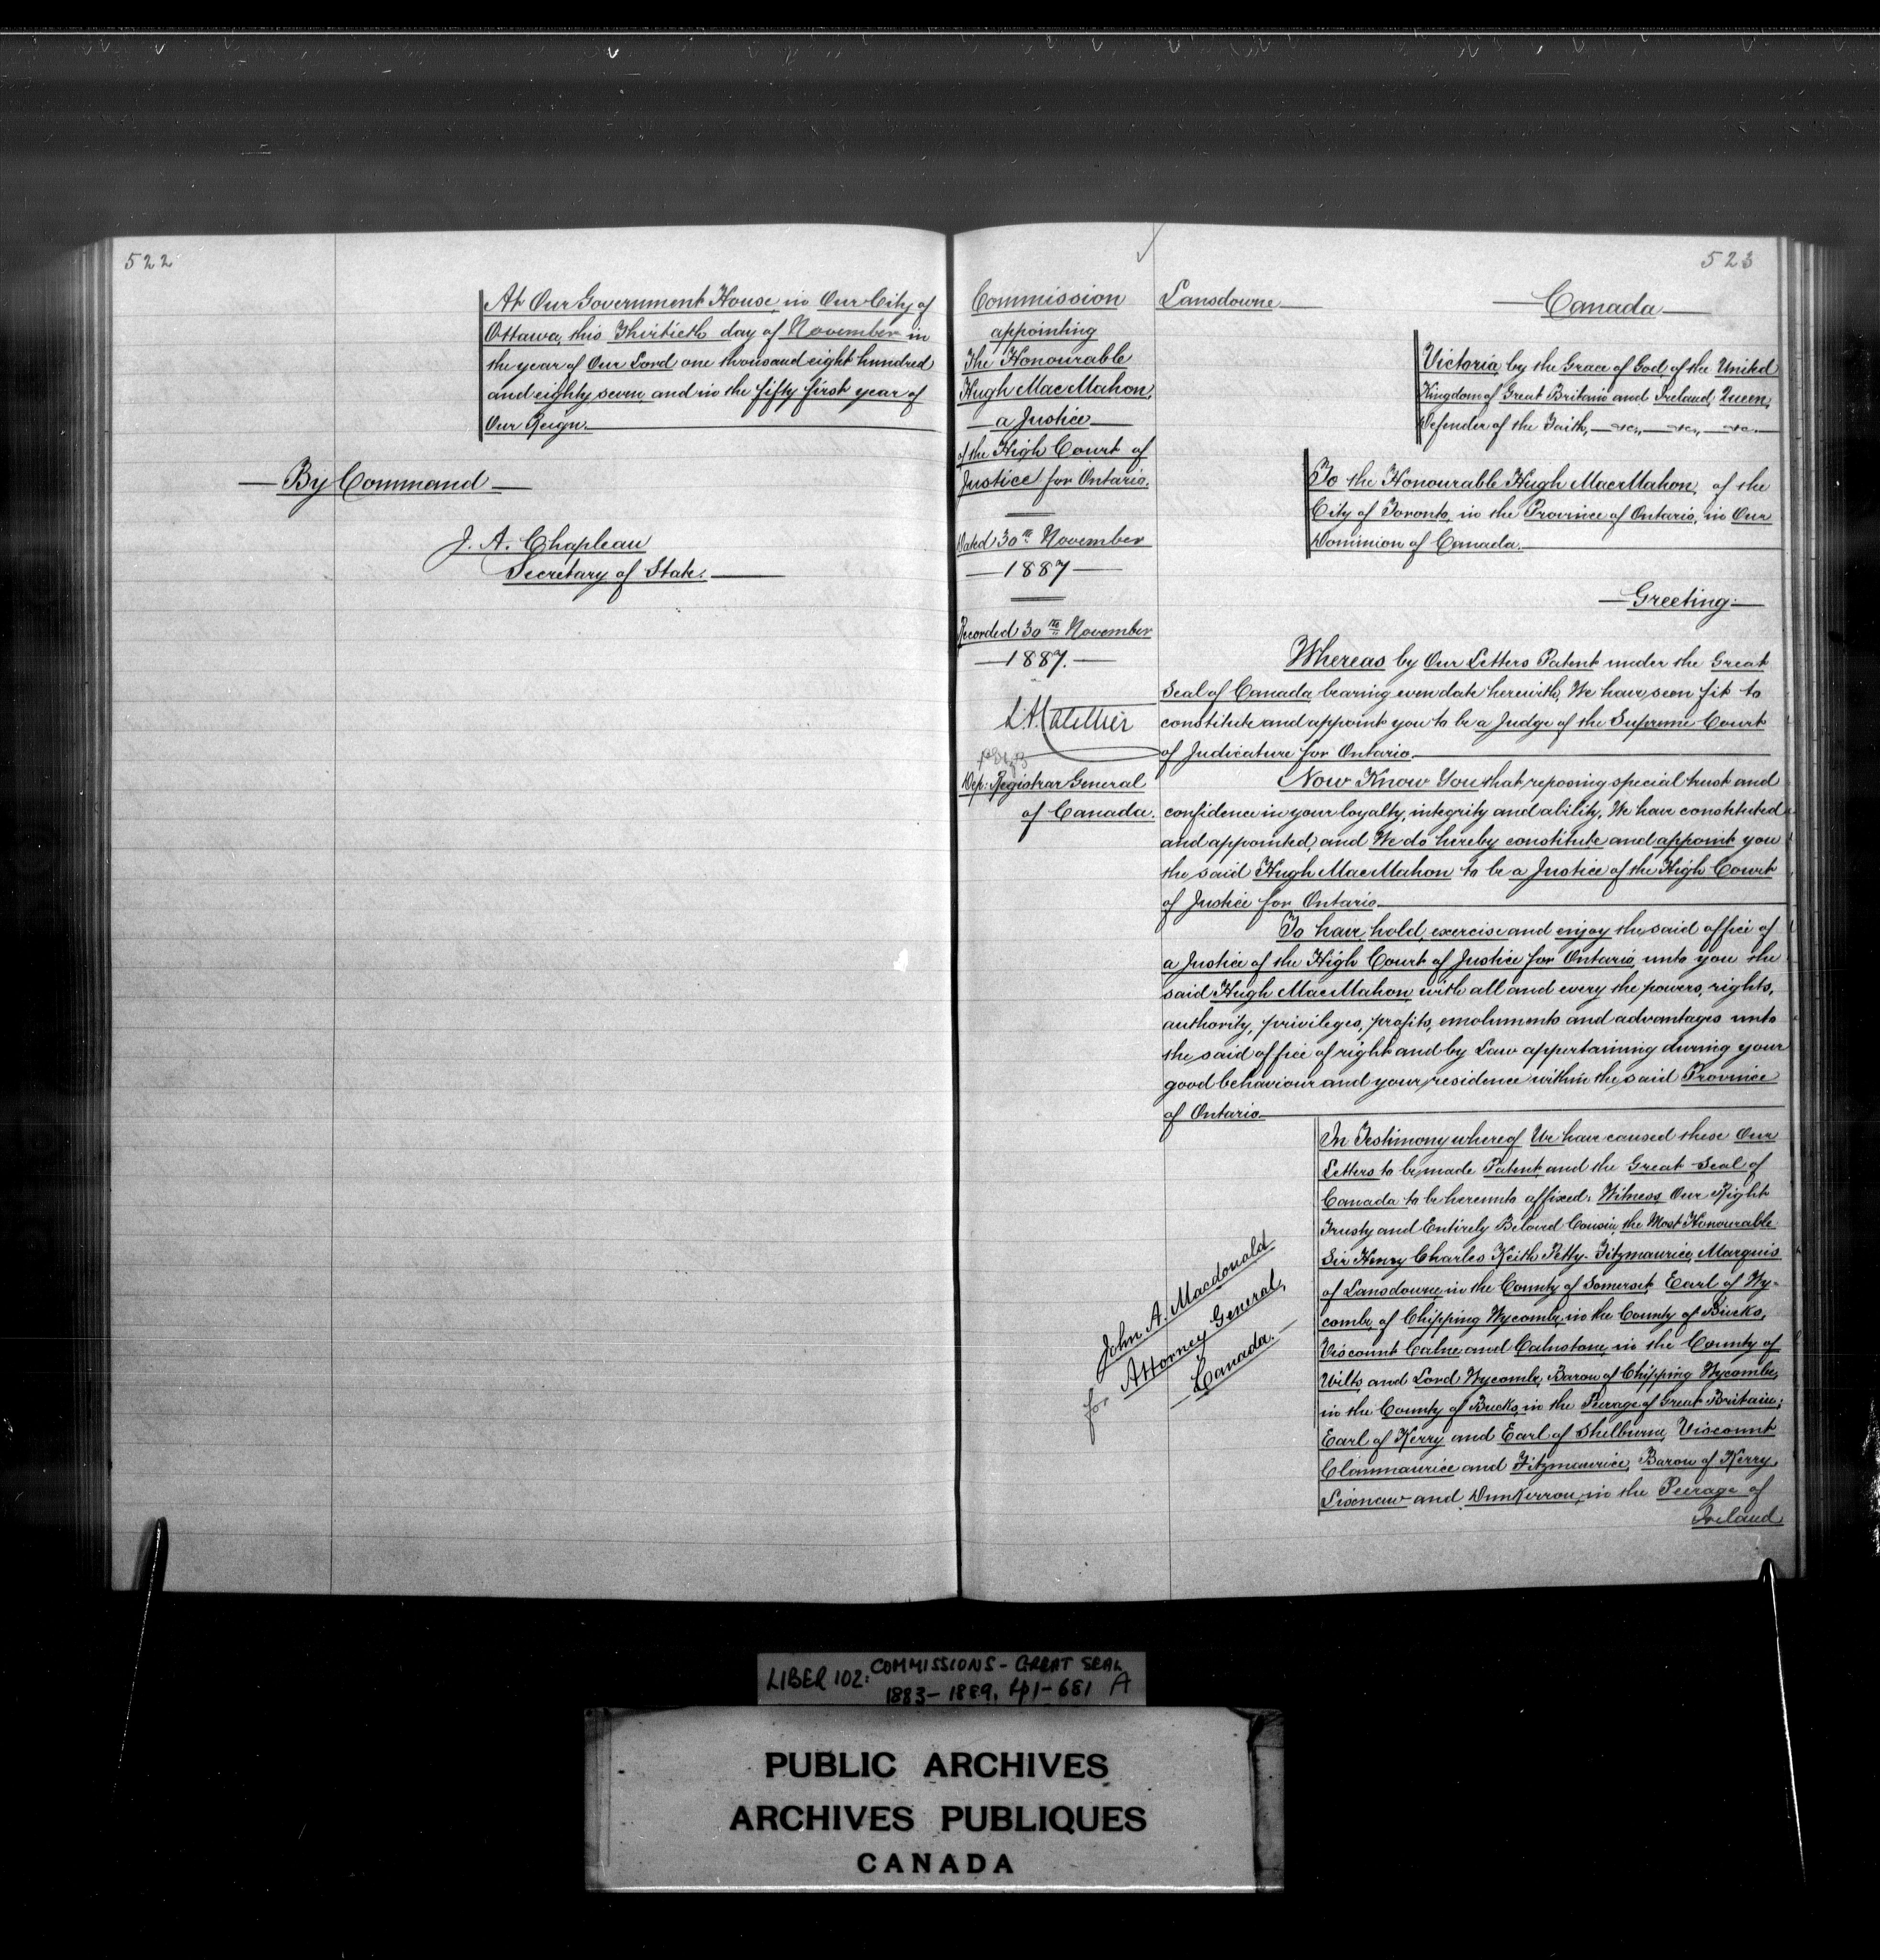 522
At Our Government House, in Our City of
Ottawa, this Thirtieth day of November in
the year of Our Lord one thousand eight hundred
and eighty seven and in the fifty first year of
Our Reign.
By Command
J. A. Chapleau
Secretary of State.
523
Commission
appointing
The Honourable
Hugh MacMahon,
a Justice
of the High Court of
Justice for Ontario.
Dated 30th November
1887
Recorded 30th November
1887.
Dep: Registrar General
of Canada.
Lansdowne
Canada
Victoria by the Grace of God of the United
Kingdom of Great Britain and Ireland, Queen,
Defender of the Faith, &c., &c., &c.
To the Honourable Hugh MacMahon, of the
City of Toronto, in the Province of Ontario, in Our
Dominion of Canada.
Greeting:
Whereas by Our Letters Patent under the Great
Seal of Canada bearing even date herewith, We have seen fit to
constitute and appoint you to be a Judge of the Supreme Court
of Judicature for Ontario.
Now Know You that reposing special trust and
confidence in your loyalty, integrity and ability, We have constituted
and appointed, and We do hereby constitute and appoint you
the said Hugh MacMahon to be a Justice of the High Court
of Justice for Ontario.
To have, hold, exercise and enjoy the said office of
a Justice of the High Court of Justice for Ontario unto you the
said Hugh MacMahon with all and every the powers, rights,
authority, privileges, profits, emoluments and advantages unto
the said office of right and by Law appertaining during your
good behaviour and your residence within the said Province
of Ontario.
In Testimony whereof We have caused these Our
Letters to be made Patent and the Great Seal of
Canada to be hereunto affixed: Witness, Our Right
Trusty and Entirely Beloved Cousin, the Most Honourable
Sir Henry Charles Keith Petty-Fitzmaurice, Marquis
of Lansdowne, in the County of Somerset, Earl of Wy-
combe, of Chipping Wycombe, in the County of Bucks,
Viscount Calne and Calnstone, in the County of
Wilts, and Lord Wycombe, Baron of Chipping Wycombe,
in the County of Bucks, in the Peerage of Great Britain;
Earl of Kerry and Earl of Shelburne, Viscount
Clanmaurice and Fitzmaurice, Baron of Kerry,
Lixnaw and Dunkerron, in the Peerage of
Ireland
John A. Macdonald
for Attorney General,
Canada.
LIBER 102: COMMISSIONS - GREAT SEAL
1883 - 1889, pp 1 - 681 A
PUBLIC ARCHIVES
ARCHIVES PUBLIQUES
CANADA